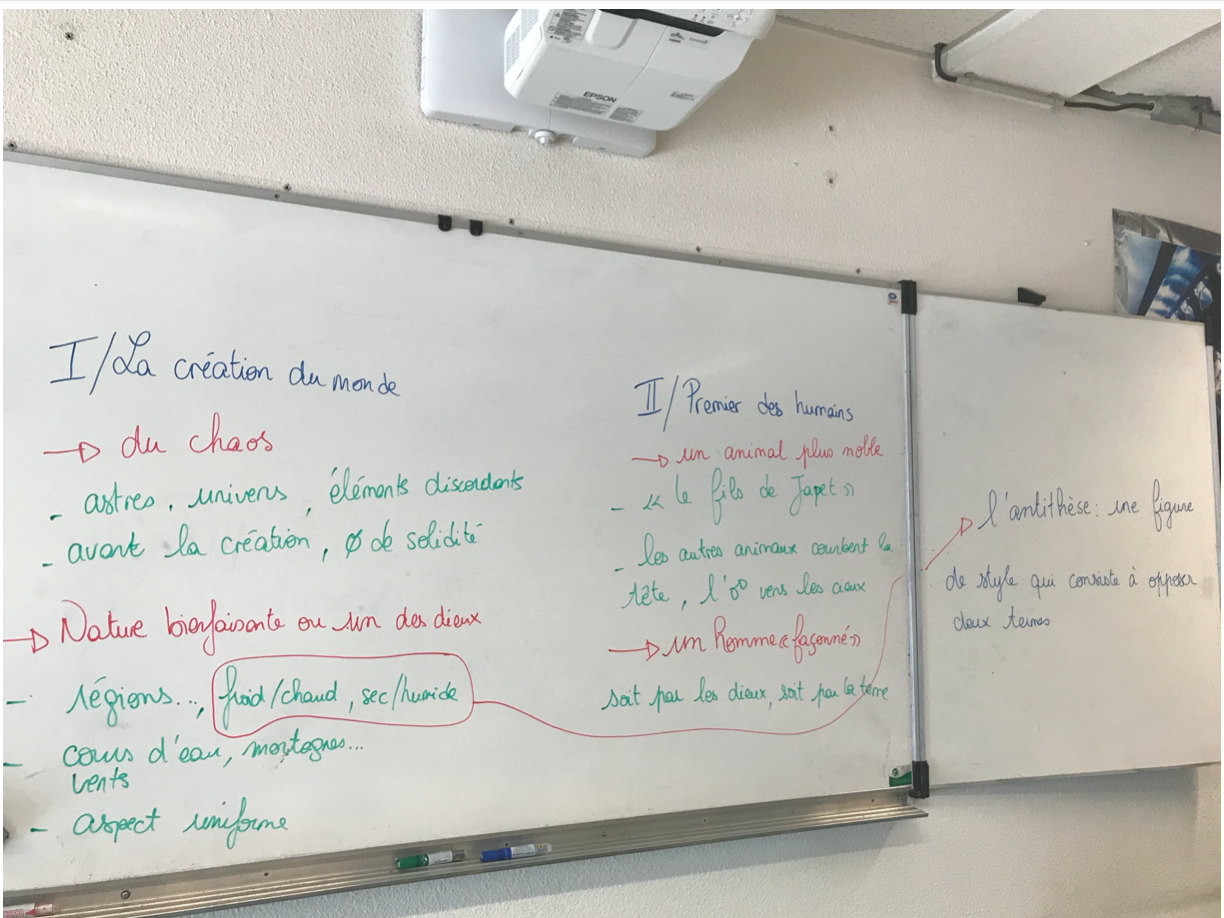 EPSON
I/La création du monde
→ du chaos
- astres, univers, éléments discordants
- avant la création, ø de solidité
→ Nature bienfaisante ou un des dieux
- régions..., froid/chaud, sec/humide
- cours d'eau, montagnes...
vents
- aspect uniforme
II/Premier des humains
→ un animal plus noble
- « le fils de Japet »
- les autres animaux courbent la
tête, l'oo vers les cieux
→ un homme « façonné »
soit par les dieux, soit par la terre
→ l'antithèse : une figure
de style qui consiste à opposer
deux termes